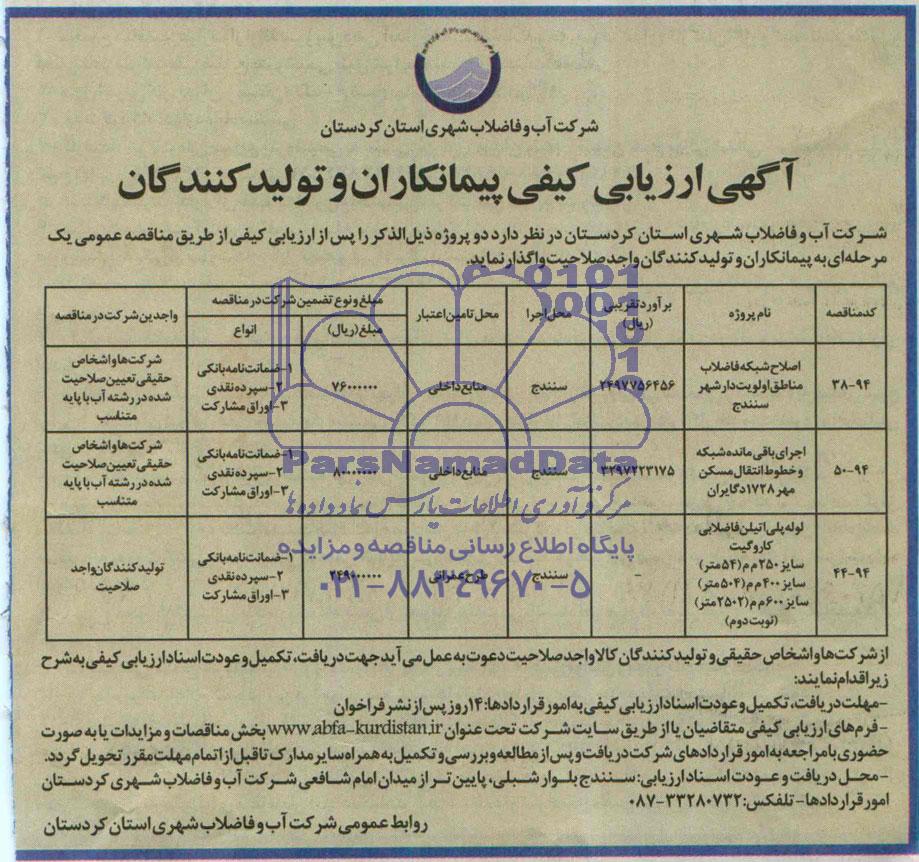 شرکت آب و فاضلاب شهری استان کردستان
آگهی ارزیابی کیفی پیمانکاران و تولیدکنندگان
شرکت آب و فاضلاب شهری استان کردستان در نظر دارد دو پروژه ذیل‌الذکر را پس از ارزیابی کیفی از طریق مناقصه عمومی یک
مرحله‌ای به پیمانکاران و تولیدکنندگان واجد صلاحیت واگذار نماید.
کد مناقصه | نام پروژه | برآورد تقریبی (ریال) | محل اجرا | محل تامین اعتبار | مبلغ و نوع تضمین شرکت در مناقصه | واجدین شرکت در مناقصه
مبلغ (ریال) | انواع
۳۸-۹۴ | اصلاح شبکه فاضلاب مناطق اولویت‌دار شهر سنندج | ۲۴۹۷۷۵۶۴۵۶ | سنندج | منابع داخلی | ۷۶۰۰۰۰۰۰ | ۱-ضمانت‌نامه بانکی ۲-سپرده نقدی ۳-اوراق مشارکت | شرکت‌ها و اشخاص حقیقی تعیین صلاحیت شده در رشته آب با پایه متناسب
۵۰-۹۴ | اجرای باقی‌مانده شبکه و خطوط انتقال مسکن مهر ۱۷۲۸ دگایران | ۳۲۹۷۲۲۳۱۷۵ | سنندج | منابع داخلی | ۸۰۰۰۰۰۰۰ | ۱-ضمانت‌نامه بانکی ۲-سپرده نقدی ۳-اوراق مشارکت | شرکت‌ها و اشخاص حقیقی تعیین صلاحیت شده در رشته آب با پایه متناسب
۴۴-۹۴ | لوله پلی‌اتیلن فاضلابی کاروگیت سایز ۲۵۰ م‌م (۵۴ متر) سایز ۴۰۰ م‌م (۵۰۴ متر) سایز ۶۰۰ م‌م (۲۵۰۲ متر) (نوبت دوم) | - | سنندج | طرح عمرانی | ۲۴۹۰۰۰۰۰۰ | ۱-ضمانت‌نامه بانکی ۲-سپرده نقدی ۳-اوراق مشارکت | تولیدکنندگان واجد صلاحیت
ParsNamadData
مرکز فرآوری اطلاعات پارس نماد داده‌ها
پایگاه اطلاع رسانی مناقصه و مزایده
۰۲۱-۸۸۳۴۹۶۷۰-۵
از شرکت‌ها و اشخاص حقیقی و تولیدکنندگان کالا واجد صلاحیت دعوت به عمل می‌آید جهت دریافت، تکمیل و عودت اسناد ارزیابی کیفی به شرح
زیر اقدام نمایند:
-مهلت دریافت، تکمیل و عودت اسناد ارزیابی کیفی به امور قراردادها: ۱۴ روز پس از نشر فراخوان
-فرم‌های ارزیابی کیفی متقاضیان یا از طریق سایت شرکت تحت عنوان www.abfa-kurdistan.ir بخش مناقصات و مزایدات یا به صورت
حضوری با مراجعه به امور قراردادهای شرکت دریافت و پس از مطالعه و بررسی و تکمیل به همراه سایر مدارک تا قبل از اتمام مهلت مقرر تحویل گردد.
-محل دریافت و عودت اسناد ارزیابی: سنندج بلوار شبلی، پایین‌تر از میدان امام شافعی شرکت آب و فاضلاب شهری کردستان
امور قراردادها- تلفکس: ۳۳۲۸۰۷۳۲-۰۸۷
روابط عمومی شرکت آب و فاضلاب شهری استان کردستان